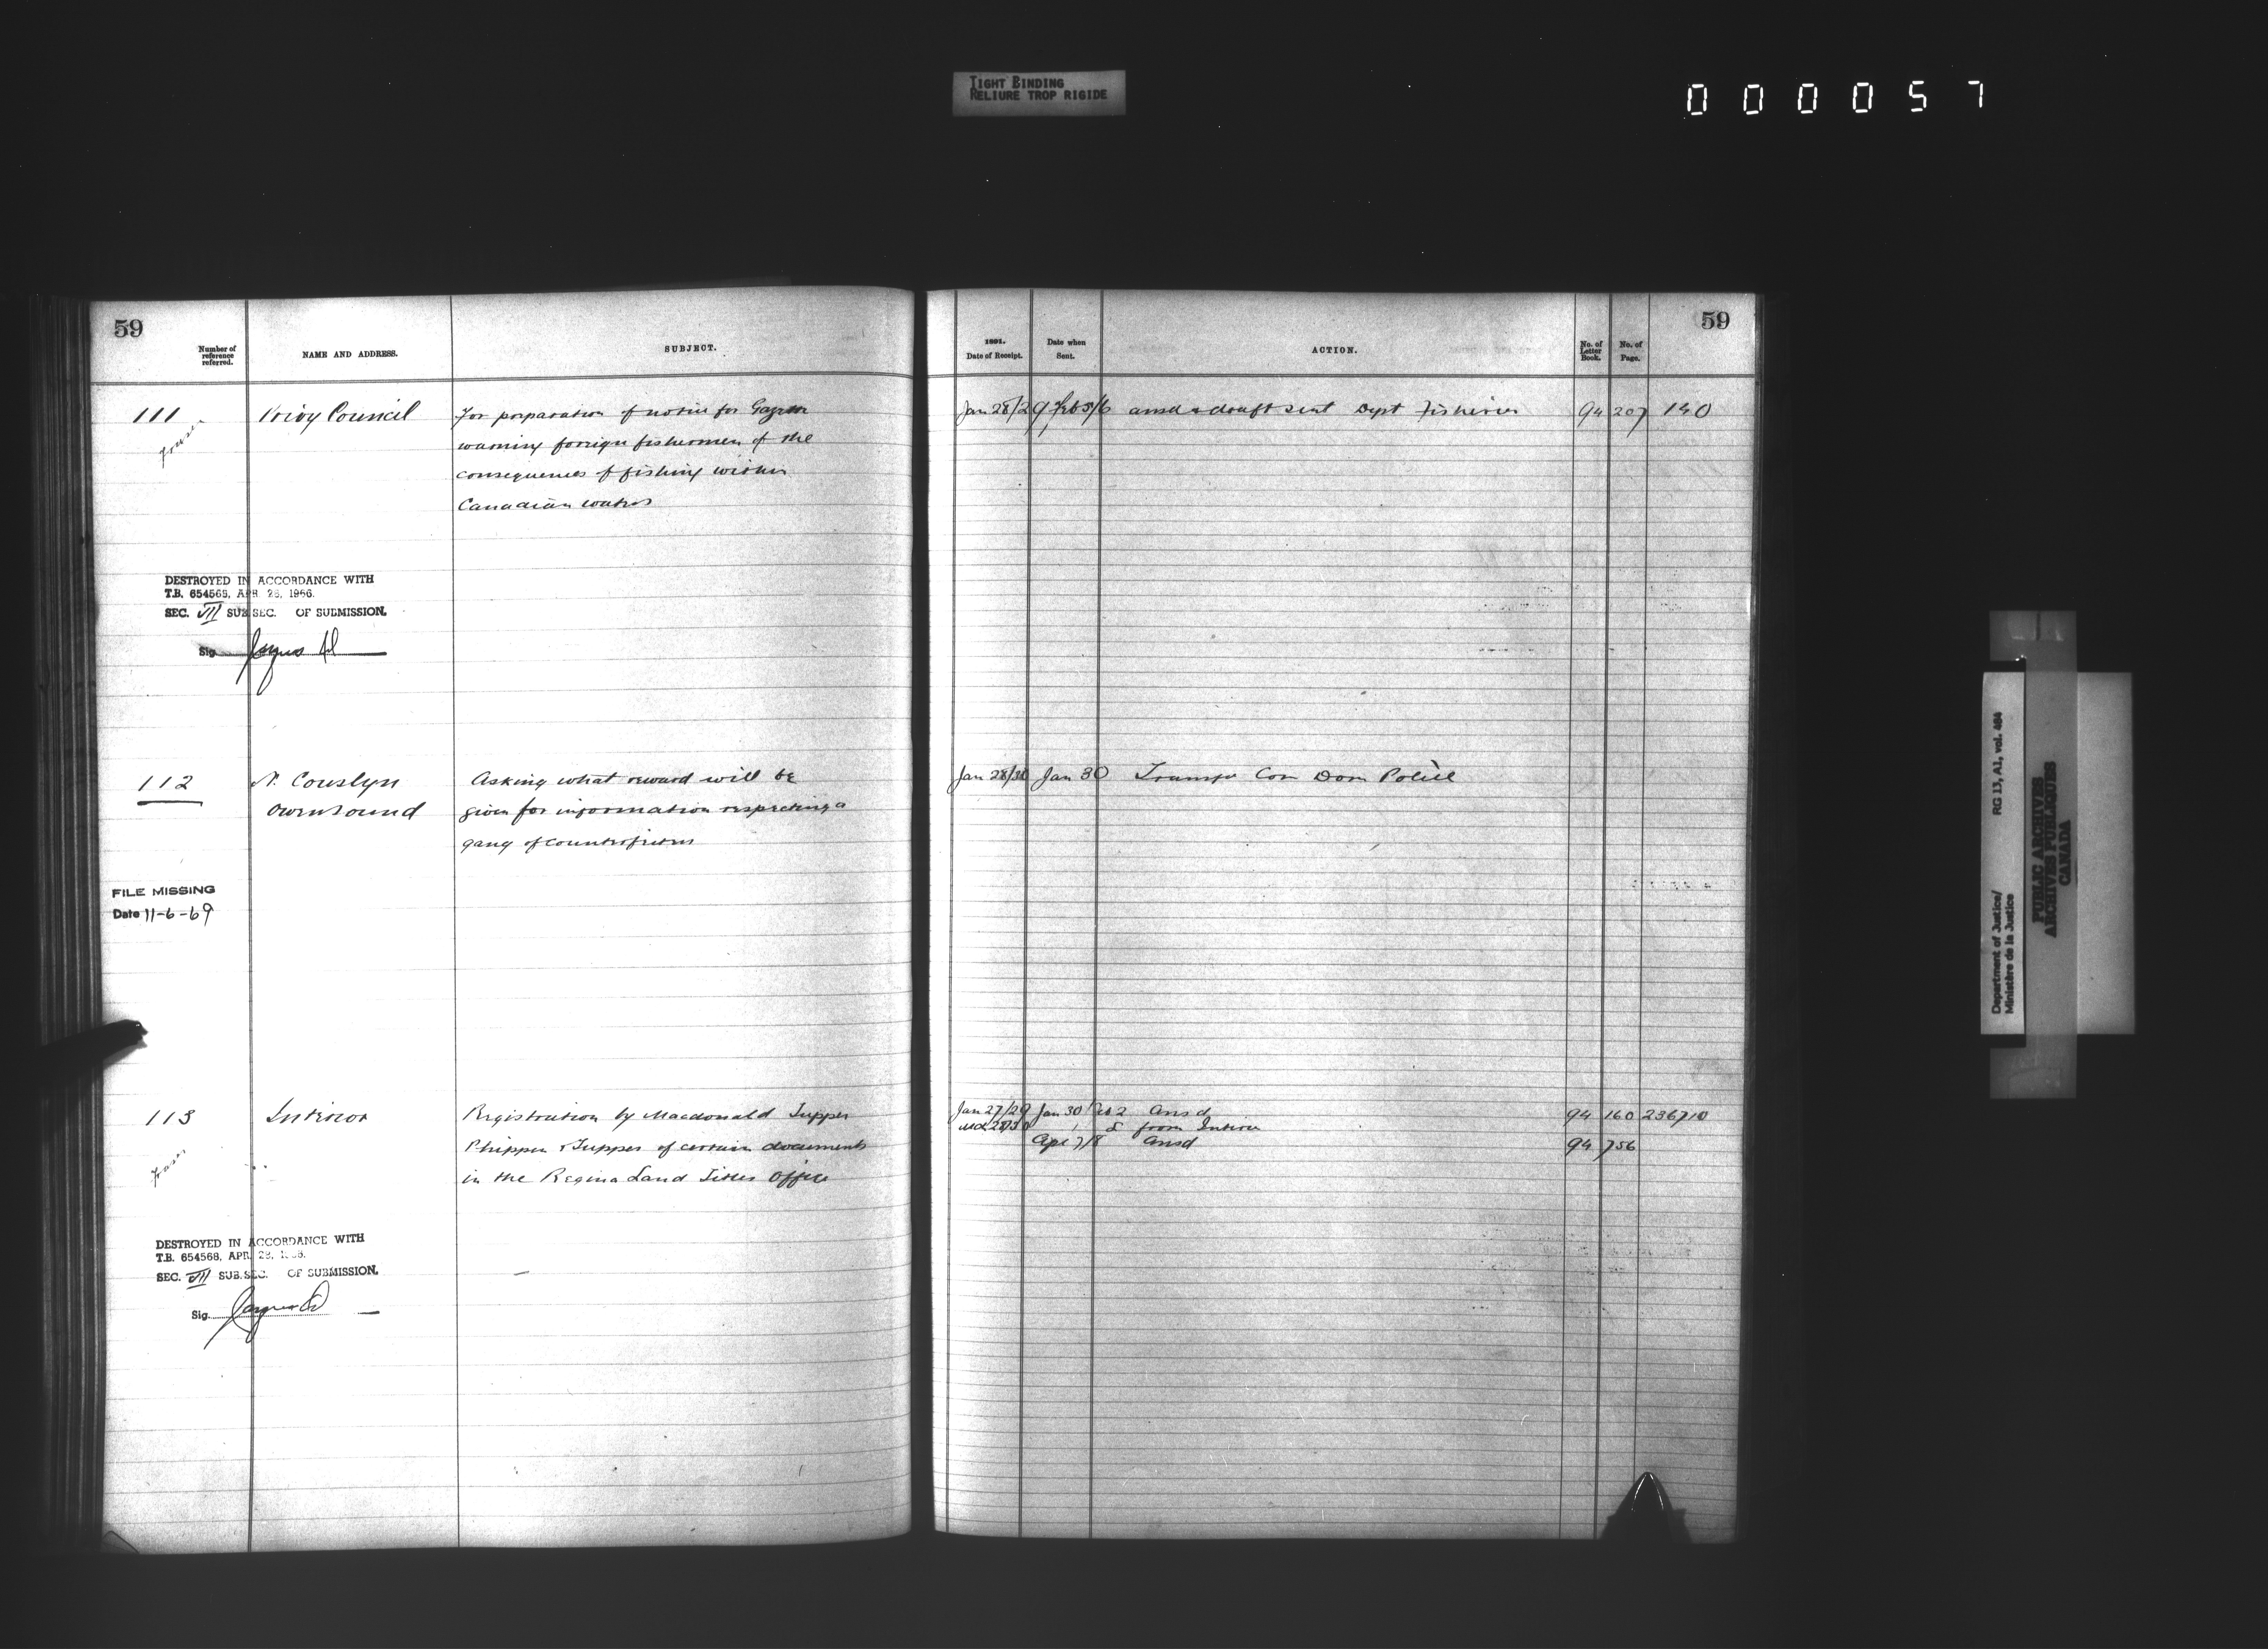 TIGHT BINDING
RELIURE TROP RIGIDE
000057
59
Number of reference referred.
NAME AND ADDRESS.
SUBJECT.
111
Privy Council
For preparation of notice for Gazette
warning foreign fishermen of the
consequences of fishing within
Canadian waters
DESTROYED IN ACCORDANCE WITH
T.B. 654568, APR. 28, 1966.
SEC. VII SUB SEC. OF SUBMISSION.
Sig.
112
N. Couslyn
Owensound
Asking what reward will be
given for information respecting a
gang of counterfeiters
FILE MISSING
Date 11-6-69
113
Interior
Registration by Macdonald Tupper
Phippen & Tupper of certain documents
in the Regina Land Titles Office
DESTROYED IN ACCORDANCE WITH
T.B. 654568, APR. 28,
SEC. VII SUB.SEC. OF SUBMISSION.
Sig.
59
1891.
Date of Receipt.
Date when Sent.
ACTION.
No. of Letter Book.
No. of Page.
Jan 28/29 Feb 5/6 ansd & draft sent Dept Fisheries 94 207 140
Jan 28/30 Jan 30 Transfer Com Dom Police
Jan 27/29 Jan 30 Feb 2 Ansd 94 160 2367 10
from Interior
Apl 7/8 Ansd 94 756
Department of Justice/
Ministère de la Justice
RG 13, A1, vol. 484
PUBLIC ARCHIVES
ARCHIVES PUBLIQUES
CANADA